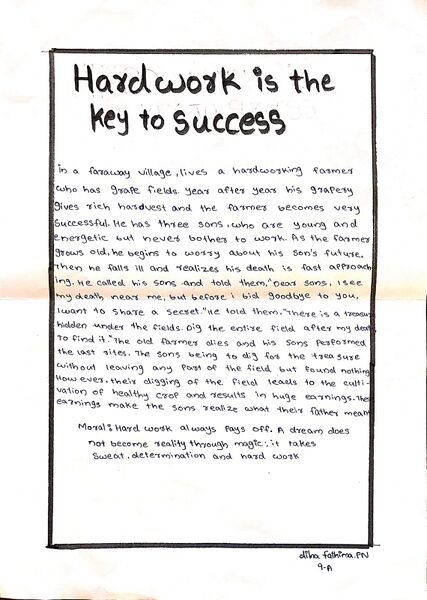 Hardwork is the
key to success
in a faraway village, lives a hardworking farmer
who has grape fields. year after year his grapery
gives rich hardvest and the farmer becomes very
successful. He has three sons, who are young and
energetic but never bother to work. As the farmer
grows old, he begins to worry about his son's future.
Then he falls ill and realizes his death is fast approach
ing. He called his sons and told them, "Dear sons, I see
my death near me, but before i bid goodbye to you,
I want to share a secret." He told them, "There is a treasure
hidden under the fields. Dig the entire field after my death
To find it." The old farmer dies and his sons performed
the last rites. The sons being to dig for the treasure
without leaving any part of the field but found nothing
However, their digging of the field leads to the culti-
vation of healthy crop and results in huge earnings. The
earnings make the sons realize what their father meant
Moral: Hard work always pays off. A dream does
not become reality through magic; it takes
sweat, determination and hard work
dilna fathima.PN
9-A